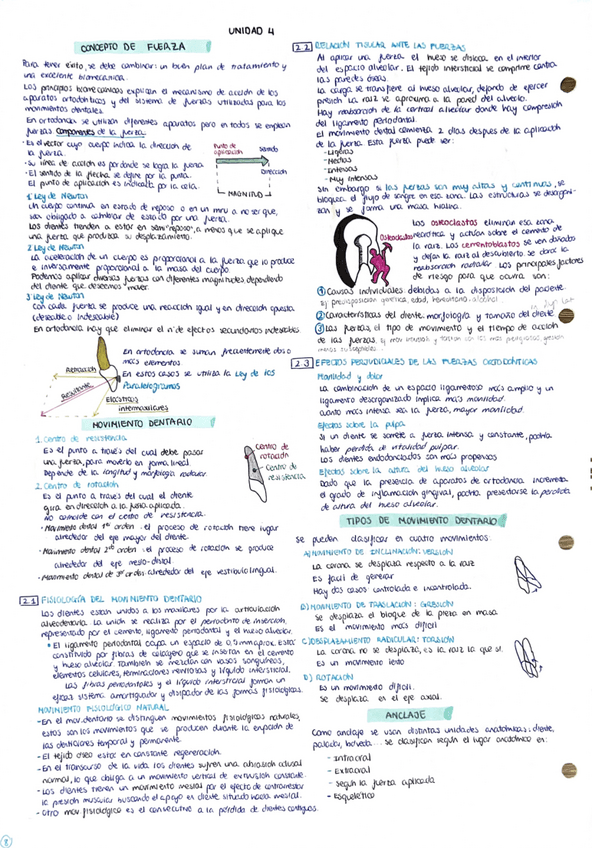 UNIDAD 4
CONCEPTO DE FUERZA
Para tener éxito, se debe combinar: un buen plan de tratamiento y
una excelente biomecánica.
Los principios biomecánicos explican el mecanismo de acción de los
aparatos ortodónticos y del sistema de fuerzas utilizadas para los
movimientos dentales.
En ortodoncia se utilizan diferentes aparatos pero en todos se emplean
fuerzas. Componentes de la fuerza
- Es el vector cuyo cuerpo indica la dirección de
la fuerza.
- Su línea de acción es por donde se logra la fuerza
- El sentido de la flecha se define por la punta.
El punto de aplicación es indicado por la cola.
Punto de
aplicación
Sentido
Dirección
MAGNITUD
1 Ley de Newton
Un cuerpo continua en estado de reposo o en un mru a no ser que,
sea obligado a cambiar de estado por una fuerza.
Los dientes tienden a estar en semi "reposo", a menos que se aplique
una fuerza que produzca su desplazamiento.
2 Ley de Newton
La aceleración de un cuerpo es proporcional a la fuerza que lo produce
e inversamente proporcional a la masa del cuerpo
Podemos aplicar diversas fuerzas con diferentes magnitudes dependiendo
del diente que deseemos mover.
3 Ley de Newton
Con cada fuerza se produce una reacción igual y en dirección opuesta
(deseable o indeseable)
En ortodoncia hay que eliminar el nº de efectos secundarios indeseables.
Retracción
Resultante
Elásticos
intermaxilares
En ortodoncia se suman frecuentemente dos o
más elementos
En estos casos se utiliza la Ley de los
Paralelogramos
MOVIMIENTO DENTARIO
1. Centro de resistencia
Es el punto a través del cual debe pasar
una fuerza, para moverlo en forma lineal
Depende de la longitud y morfología radicular.
2. Centro de rotación
Es el punto a través del cual el diente
gira en dirección a la fuerza aplicada.
No coincide con el centro de resistencia.
Centro de
rotación
Centro de
resistencia
- Movimiento dental 1er orden: el proceso de rotación tiene lugar
alrededor del eje mayor del diente.
- Movimiento dental 2do orden: el proceso de rotación se produce
alrededor del eje mesio-distal.
- Movimiento dental de 3er orden: alrededor del eje vestíbulo lingual.
2.1 FISIOLOGÍA DEL MOVIMIENTO DENTARIO
Los dientes están unidos a los maxilares por la articulación
alveodentaria. La unión se realiza por el periodonto de inserción,
representado por el cemento, ligamento periodontal y el hueso alveolar.
El ligamento periodontal ocupa un espacio de 0,5mm aprox. Está
constituido por fibras de colágeno que se insertan en el cemento
y hueso alveolar. También se mezclan con vasos sanguíneos,
elementos celulares, terminaciones nerviosas y líquido intersticial.
Las fibras periodontales y el líquido intersticial forman un
eficaz sistema amortiguador y disipador de las formas fisiológicas.
MOVIMIENTO FISIOLÓGICO NATURAL
- En el mov. dentario se distinguen movimientos fisiológicos naturales,
estos son los movimientos que se producen durante la erupción de
las denticiones temporal y permanente.
- El tejido óseo está en constante regeneración.
- En el transcurso de la vida los dientes sufren una abrasión oclusal
normal, lo que obliga a un movimiento vertical de extrusión constante.
- Los dientes tienen un movimiento mesial por el efecto de contrarrestar
la presión muscular buscando el apoyo en diente situado hacia mesial.
- Otro mov. fisiológico es el consecutivo a la pérdida de dientes contiguos.
8
2.2 RELACIÓN TISULAR ANTE LAS FUERZAS
Al aplicar una fuerza el hueso se disloca en el interior
del espacio alveolar. El tejido intersticial se comprime contra
las paredes óseas.
La carga se transfiere al hueso alveolar, dejando de ejercer
presión. La raíz se aproxima a la pared del alveolo.
Hay reabsorción de la cortical alveolar donde hay compresión
del ligamento periodontal.
El movimiento dental comienza 2 días después de la aplicación
de la fuerza. Esta fuerza puede ser:
- Ligeras
- Medias
- Intensas
- Muy intensas
Sin embargo si las fuerzas son muy altas y continuas, se
bloquea el flujo de sangre en esa zona. Las estructuras se desorgani-
zan y se forma una masa hialina.
Osteoclastos
Los osteoclastos eliminan esa zona
necrótica y actúan sobre el cemento de
la raíz. Los cementoblastos se ven dañados
y dejan la raíz al descubierto se da la
reabsorción radicular. Los principales factores
de riesgo para que ocurra son:
1 Causas individuales debidas a la disposición del paciente.
Ej: predisposición genética, edad, hereditario, alcohol
2 Características del diente: morfología y tamaño del diente.
3 Las fuerzas, el tipo de movimiento y el tiempo de acción
de las fuerzas.
2.3 EFECTOS PERJUDICIALES DE LAS FUERZAS ORTODÓNTICAS
Movilidad y dolor
La combinación de un espacio ligamentoso más amplio y un
ligamento desorganizado implica más movilidad.
Cuanto más intensa sea la fuerza, mayor movilidad.
Efectos sobre la pulpa
Si un diente se somete a fuerza intensa y constante, podría
haber pérdida de vitalidad pulpar.
Los dientes endodonciados son más propensos
Efectos sobre la altura del hueso alveolar
Dado que la presencia de aparatos de ortodoncia incrementa
el grado de inflamación gingival, podría presentarse la pérdida
de altura del hueso alveolar.
TIPOS DE MOVIMIENTO DENTARIO
Se pueden clasificar en cuatro movimientos:
A) MOVIMIENTO DE INCLINACIÓN: VERSIÓN
La corona se desplaza respecto a la raíz
Es fácil de generar
Hay dos casos controlada e incontrolada.
B) MOVIMIENTO DE TRASLACIÓN: GRESIÓN
Se desplaza el bloque de la pieza en masa
Es el movimiento más difícil
C) DESPLAZAMIENTO RADICULAR: TORSIÓN
La corona no se desplaza, es la raíz la que sí.
Es un movimiento lento
D) ROTACIÓN
Es un movimiento difícil.
Se desplaza en el eje axial.
ANCLAJE
Como anclaje se usan distintas unidades anatómicas: diente,
paladar, cabeza... se clasifican según el lugar anatómico en:
- Intraoral
- Extraoral
- según la fuerza aplicada
- Esquelético